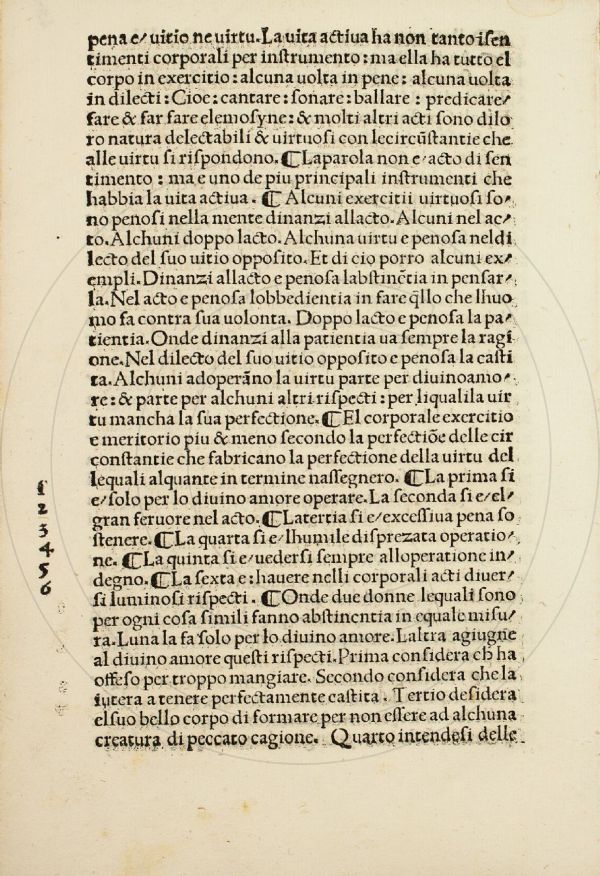 pena e/ uitio ne uirtu. La uita actiua ha non tanto i sen
timenti corporali per instrumento: ma ella ha tutto el
corpo in exercitio: alcuna uolta in pene: alcuna uolta
in dilecti: Cioe: cantare: sonare: ballare: predicare/
fare & far fare elemosyne: & molti altri acti sono dilo
ro natura delectabili & uirtuosi con lecircũstantie che
alle uirtu si rispondono. ¶ Laparola non e/ acto di sen
timento: ma e uno de piu principali instrumenti che
habbia la uita actiua. ¶ Alcuni exercitii uirtuosi so/
no penosi nella mente dinanzi allacto. Alcuni nel ac/
to. Alchuni doppo lacto. Alchuna uirtu e penosa neldi
lecto del suo uitio opposito. Et di cio porro alcuni ex/
empli. Dinanzi allacto e penosa labstinẽtia in pensar/
la. Nel acto e penosa lobbedientia in fare q̃llo che lhuo
mo fa contra sua uolonta. Doppo lacto e penosa la pa/
tientia. Onde dinanzi alla patientia ua sempre la ragi
one. Nel dilecto del suo uitio opposito e penosa la casti
ta. Alchuni adoperãno la uirtu parte per diuinoamo/
re: & parte per alchuni altri rispecti: per liqualila uir
tu mancha la sua perfectione. ¶ El corporale exercitio
e meritorio piu & meno secondo la perfectiõe delle cir
constantie che fabricano la perfectione della uirtu del
lequali alquante in termine nassegnero. ¶ La prima si
e/ solo per lo diuino amore operare. La seconda si e/ el
gran feruore nel acto. ¶ Latertia si e/ excessiua pena so
stenere. ¶ La quarta si e/ lhumile disprezata operatio/
ne. ¶ La quinta si e/ uedersi sempre alloperatione in/
degno. ¶ La sexta e: hauere nelli corporali acti diuer/
si luminosi rispecti. ¶ Onde due donne lequali sono
per ogni cosa simili fanno abstinentia in equale misu/
ra. Luna la fa solo per lo diuino amore. Laltra agiugne
al diuino amore questi rispecti. Prima considera cħ ha
offeso per troppo mangiare. Secondo considera che la
iutera a tenere perfectamente castita. Tertio desidera
elsuo bello corpo di formare per non essere ad alchuna
creatura di peccato cagione. Quarto intendesi delle
1
2
3
4
5
6